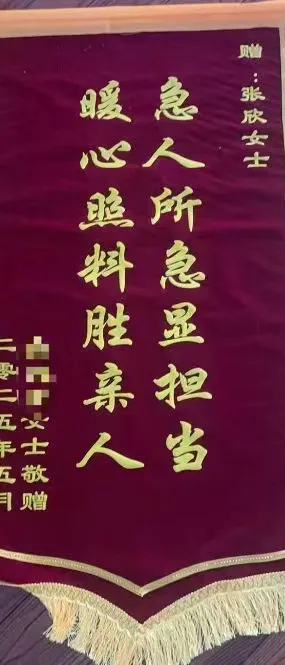 赠：张欣女士
急人所急显担当
暖心照料胜亲人
女士敬赠
二零二五年五月